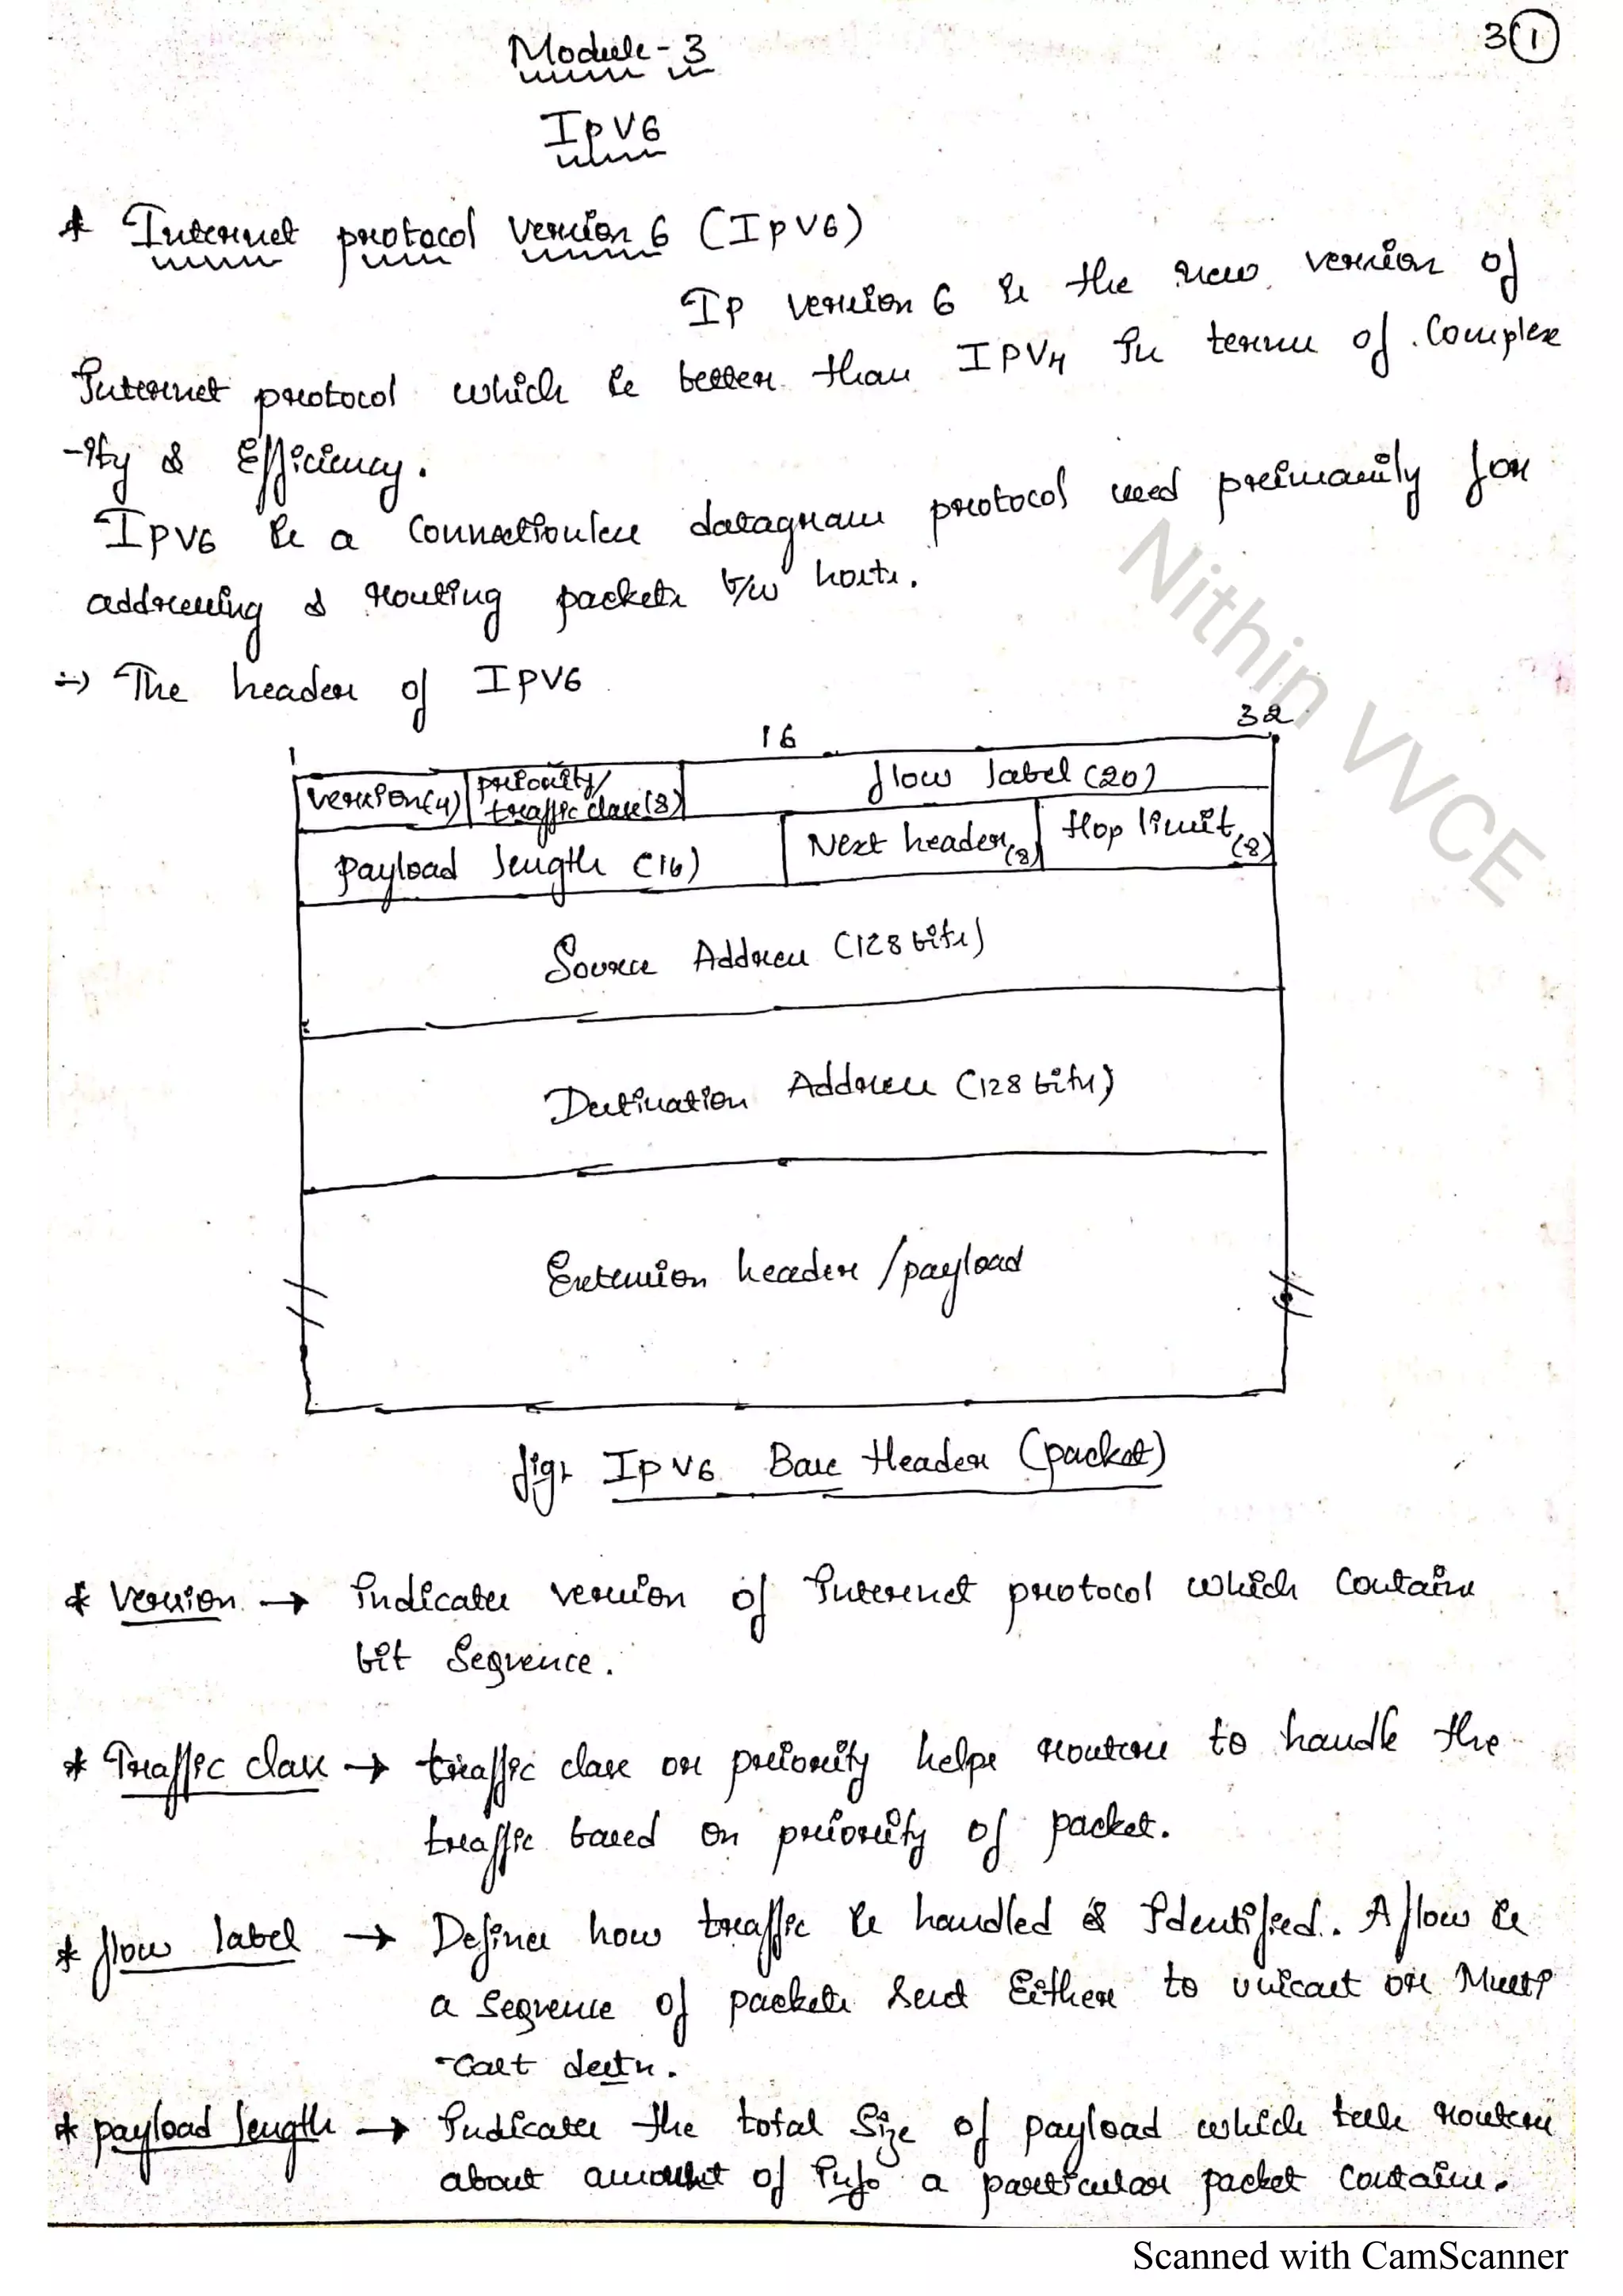 3 (1)
Module-3
IPV6
* Internet protocol version 6 (IPV6)
IP version 6 is the new version of
Internet protocol which is better than IPV4 in terms of Complex
-ity & Efficiency.
IPV6 is a Connectionless datagram protocol used primarily for
addressing & routing packets b/w hosts.
=> The header of IPV6
1 16 32
version(4) priority/ traffic class(8) flow label (20)
payload length (16) Next header(8) Hop limit(8)
Source Address (128 bits)
Destination Address (128 bits)
Extension header /payload
fig: IPV6 Base Header (packet)
* Version → Indicates version of Internet protocol which Contains
bit Sequence.
* Traffic class → traffic class or priority helps routers to handle the
traffic based on priority of packet.
* flow label → Defines how traffic is handled & Identified. A flow is
a sequence of packets send Either to unicast or Multi
-cast destn.
* payload length → Indicates the total Size of payload which tells routers
about amount of Info a particular packet Contains.
Nithin VVCE
Scanned with CamScanner